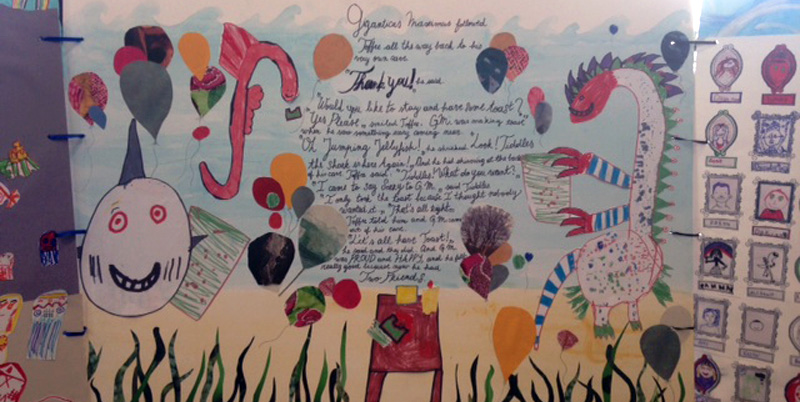 Giganticus Maximus followed
Toffee all the way back to his
very own cave.
"Thank you!" he said.
"Would you like to stay and have some toast?"
"Yes Please," smiled Toffee. G.M. was making toast
when he saw something scary coming near.
"Oh Jumping Jellyfish!" he shrieked. Look! Tiddles
the shark is here Again! And he hid shivering at the back
of his cave. Toffee said "Tiddles! What do you want?"
"I came to say sorry to G.M." said Tiddles
"I only took the toast because I thought nobody
wanted it." "That's all right.
Toffee told him and G.M. came
out of his cave.
"Let's all have Toast!"
he said and they did. And G.M.
was PROUD and HAPPY and he felt
really good because now he had
Two Friends!